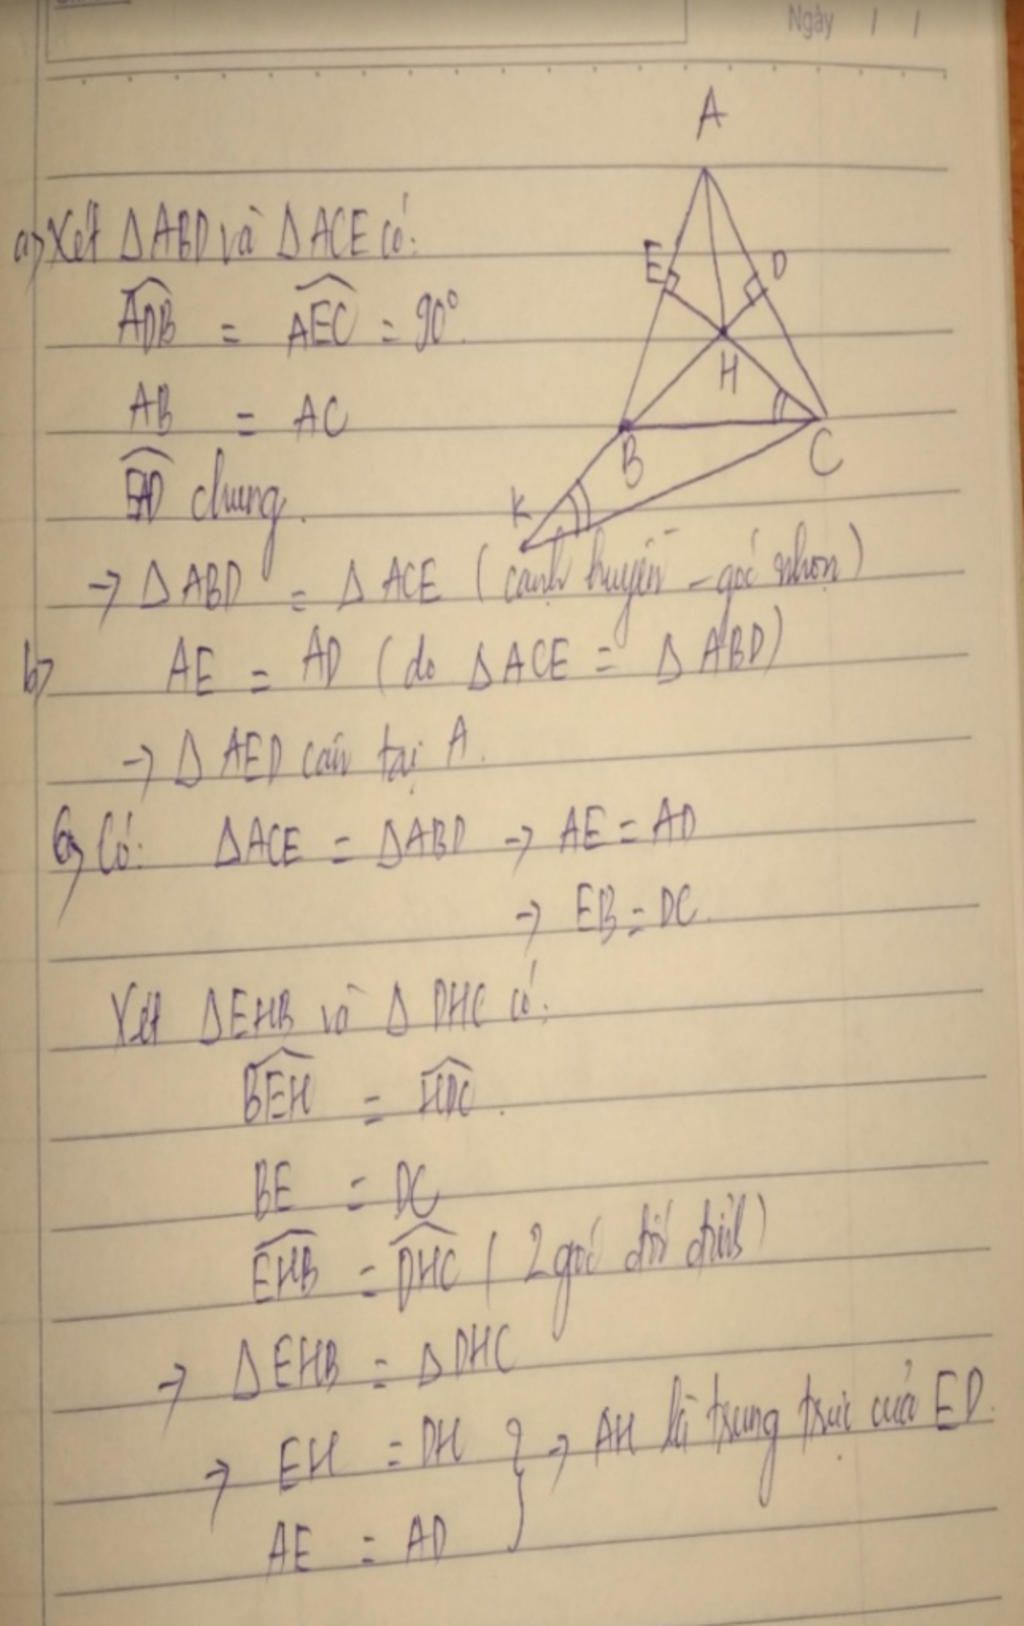 Ngày / /
A
E
D
H
B
C
K
a) Xét ΔABD và ΔACE có:
∠ADB = ∠AEC = 90°.
AB = AC
∠EAD chung.
→ ΔABD = ΔACE (cạnh huyền - góc nhọn)
b) AE = AD (do ΔACE = ΔABD)
→ ΔAED cân tại A.
c) Có: ΔACE = ΔABD → AE = AD
→ EB = DC.
Xét ΔEHB và ΔDHC có:
∠BEH = ∠HDC.
BE = DC
∠EHB = ∠DHC (2 góc đối đỉnh)
→ ΔEHB = ΔDHC
→ EH = DH } → AH là trung trực của ED.
AE = AD